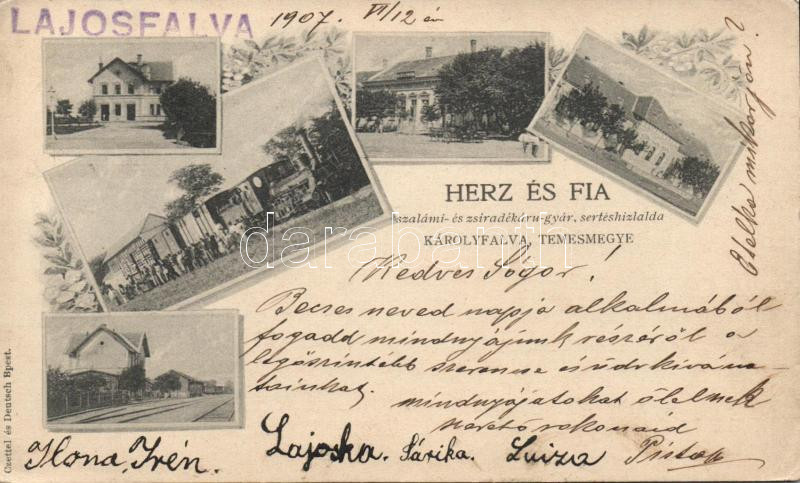 LAJOSFALVA
1907. VI/12 én
HERZ ÉS FIA
szalámi- és zsiradékáru-gyár, sertéshizlalda
KÁROLYFALVA, TEMESMEGYE
darabanth.com
Kedves Sógor!
Becses neved napja alkalmából
fogadd mindnyájunk részéről a
legőszintébb szerencse és üdv kívána-
tainkat.
mindnyájatokat ölelnek
szerető rokonaid
Ilona, Irén. Lajoska. Sárika. Luiza Pista
Etelka mikor jön?
Czettel és Deutsch Bpest.